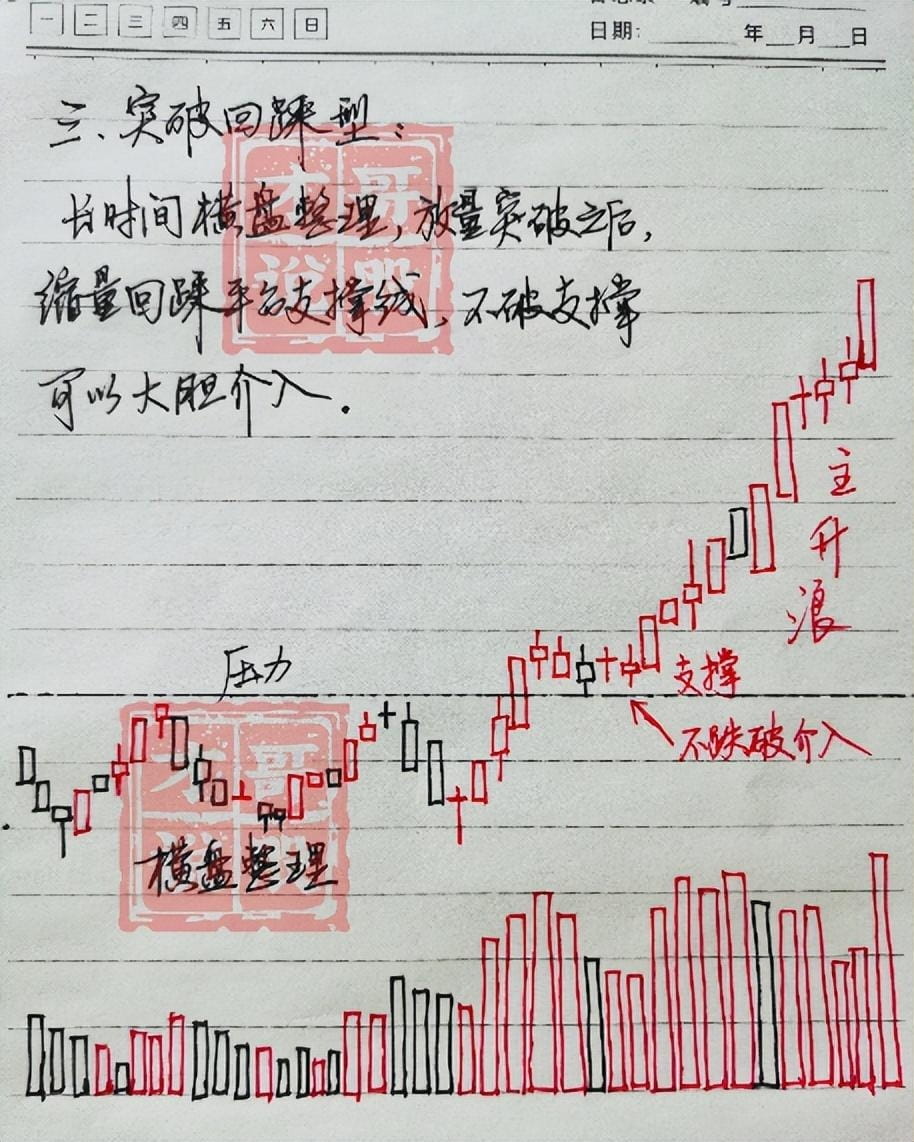 一 二 三 四 五 六 日
日期: 年 月 日
三、突破回踩型：
长时间横盘整理，放量突破之后，
缩量回踩平台支撑线，不破支撑
可以大胆介入．
才哥
说股
主升浪
压力
支撑
不跌破介入
才哥
说
横盘整理